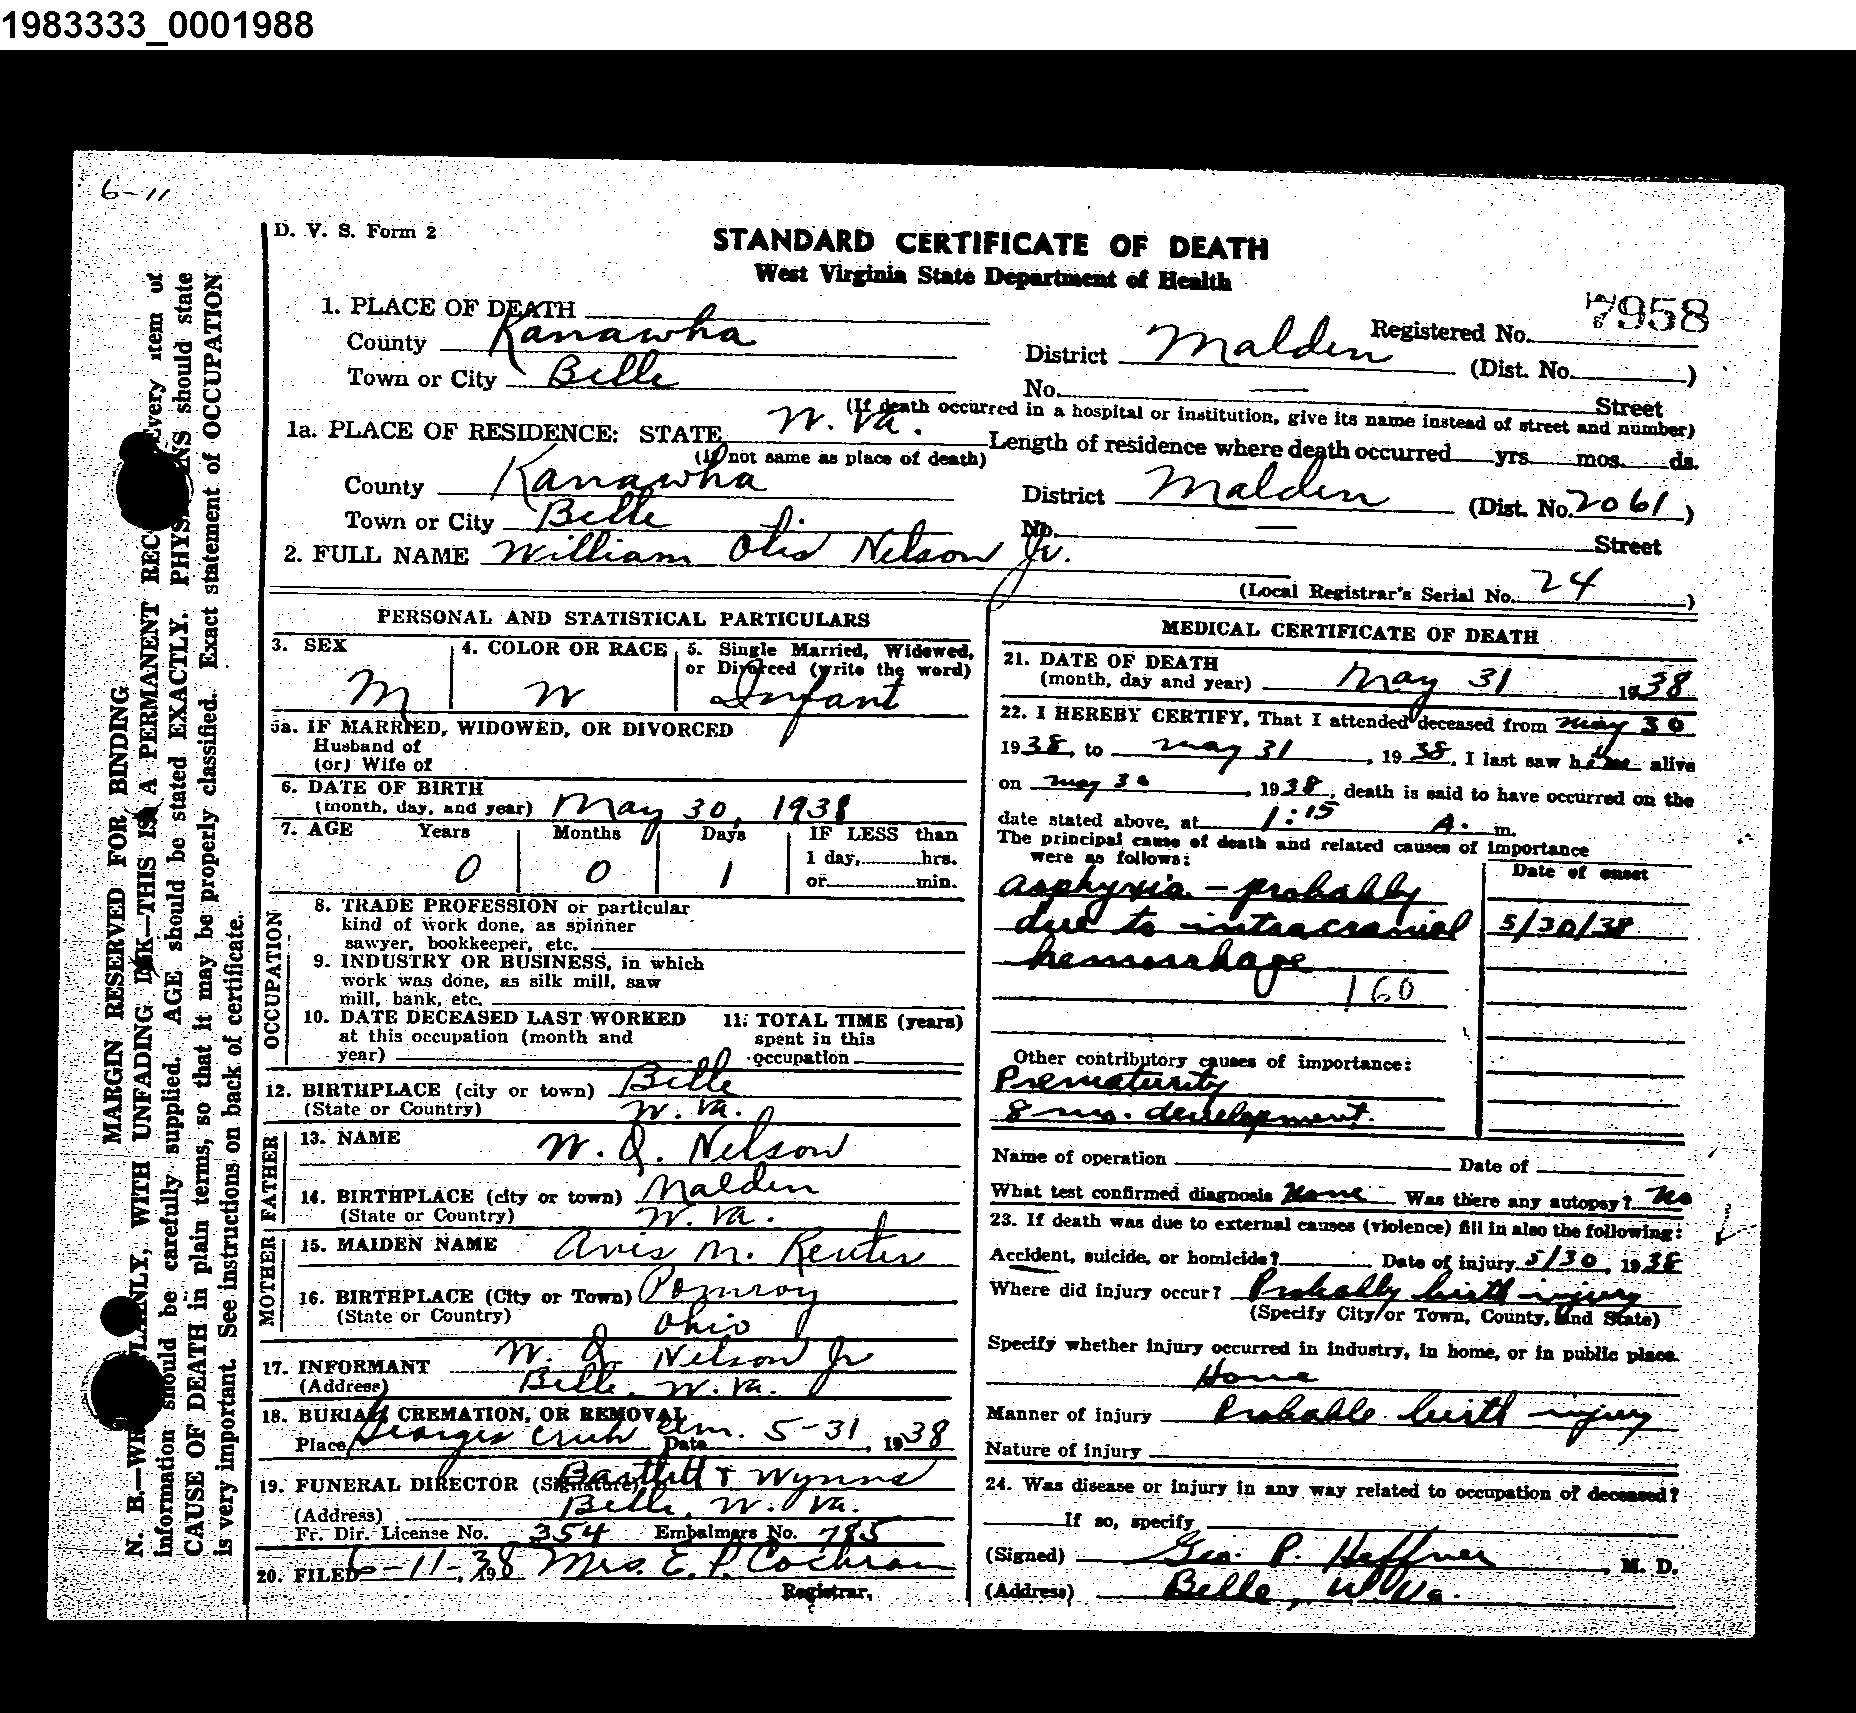 1983333_0001988
6-11
D. V. S. Form 2
STANDARD CERTIFICATE OF DEATH
West Virginia State Department of Health
1. PLACE OF DEATH
Registered No. 7958
County Kanawha District Malden (Dist. No. )
Town or City Belle No. — Street
(If death occurred in a hospital or institution, give its name instead of street and number)
1a. PLACE OF RESIDENCE: STATE W. Va. Length of residence where death occurred yrs. mos. ds.
(If not same as place of death)
County Kanawha District Malden (Dist. No. 2061)
Town or City Belle No. — Street
2. FULL NAME William Otis Nelson Jr.
(Local Registrar's Serial No. 24)
PERSONAL AND STATISTICAL PARTICULARS
3. SEX M
4. COLOR OR RACE W
5. Single Married, Widowed, or Divorced (write the word) Infant
5a. IF MARRIED, WIDOWED, OR DIVORCED
Husband of
(or) Wife of
6. DATE OF BIRTH
(month, day, and year) May 30, 1938
7. AGE Years 0 Months 0 Days 1 IF LESS than
1 day, hrs.
or min.
OCCUPATION
8. TRADE PROFESSION or particular
kind of work done, as spinner
sawyer, bookkeeper, etc.
9. INDUSTRY OR BUSINESS, in which
work was done, as silk mill, saw
mill, bank, etc.
10. DATE DECEASED LAST WORKED
at this occupation (month and
year)
11. TOTAL TIME (years)
spent in this
occupation
12. BIRTHPLACE (city or town) Belle
(State or Country) W. Va.
FATHER
13. NAME W. O. Nelson
14. BIRTHPLACE (city or town) Malden
(State or Country) W. Va.
MOTHER
15. MAIDEN NAME Avis M. Reuter
16. BIRTHPLACE (City or Town) Pomroy
(State or Country) Ohio
17. INFORMANT W. O. Nelson Jr
(Address) Belle, W. Va.
18. BURIAL, CREMATION, OR REMOVAL
Place Georges Crick Cem. Date 5-31, 1938
19. FUNERAL DIRECTOR (Signature) Bartlett & Wynns
(Address) Belle, W. Va.
Fr. Dir. License No. 354 Embalmers No. 785
20. FILED 6-11-, 1938 Mrs. E. P. Cochran
Registrar.
MEDICAL CERTIFICATE OF DEATH
21. DATE OF DEATH
(month, day and year) May 31 1938
22. I HEREBY CERTIFY, That I attended deceased from May 30
1938, to May 31, 1938, I last saw him alive
on May 30, 1938, death is said to have occurred on the
date stated above, at 1:15 A. m.
The principal cause of death and related causes of importance
were as follows:
Date of onset
asphyxia - probably
due to intracranial 5/30/38
hemorrhage
160
Other contributory causes of importance:
Prematurity
8 mo. development.
Name of operation Date of
What test confirmed diagnosis None Was there any autopsy? No
23. If death was due to external causes (violence) fill in also the following:
Accident, suicide, or homicide? Date of injury 5/30, 1938
Where did injury occur? Probably birth injury
(Specify City or Town, County, and State)
Specify whether injury occurred in industry, in home, or in public place.
Home
Manner of injury Probable birth injury
Nature of injury
24. Was disease or injury in any way related to occupation of deceased?
If so, specify
(Signed) Geo. P. Heffner, M. D.
(Address) Belle, W. Va.
MARGIN RESERVED FOR BINDING
N. B.—WRITE PLAINLY, WITH UNFADING INK—THIS IS A PERMANENT REC Every item of
information should be carefully supplied. AGE should be stated EXACTLY. PHYSICIANS should state
CAUSE OF DEATH in plain terms, so that it may be properly classified. Exact statement of OCCUPATION
is very important. See instructions on back of certificate.